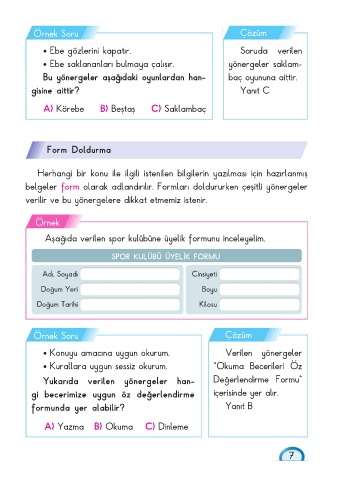 Örnek Soru
• Ebe gözlerini kapatır.
• Ebe saklananları bulmaya çalışır.
Bu yönergeler aşağıdaki oyunlardan han-
gisine aittir?
A) Körebe B) Beştaş C) Saklambaç
Çözüm
Soruda verilen
yönergeler saklam-
baç oyununa aittir.
Yanıt C
Form Doldurma
Herhangi bir konu ile ilgili istenilen bilgilerin yazılması için hazırlanmış
belgeler form olarak adlandırılır. Formları doldururken çeşitli yönergeler
verilir ve bu yönergelere dikkat etmemiz istenir.
Örnek
Aşağıda verilen spor kulübüne üyelik formunu inceleyelim.
SPOR KULÜBÜ ÜYELİK FORMU
Adı, Soyadı Cinsiyeti
Doğum Yeri Boyu
Doğum Tarihi Kilosu
Örnek Soru
• Konuyu amacına uygun okurum.
• Kurallara uygun sessiz okurum.
Yukarıda verilen yönergeler han-
gi becerimize uygun öz değerlendirme
formunda yer alabilir?
A) Yazma B) Okuma C) Dinleme
Çözüm
Verilen yönergeler
"Okuma Becerileri Öz
Değerlendirme Formu"
içerisinde yer alır.
Yanıt B
7